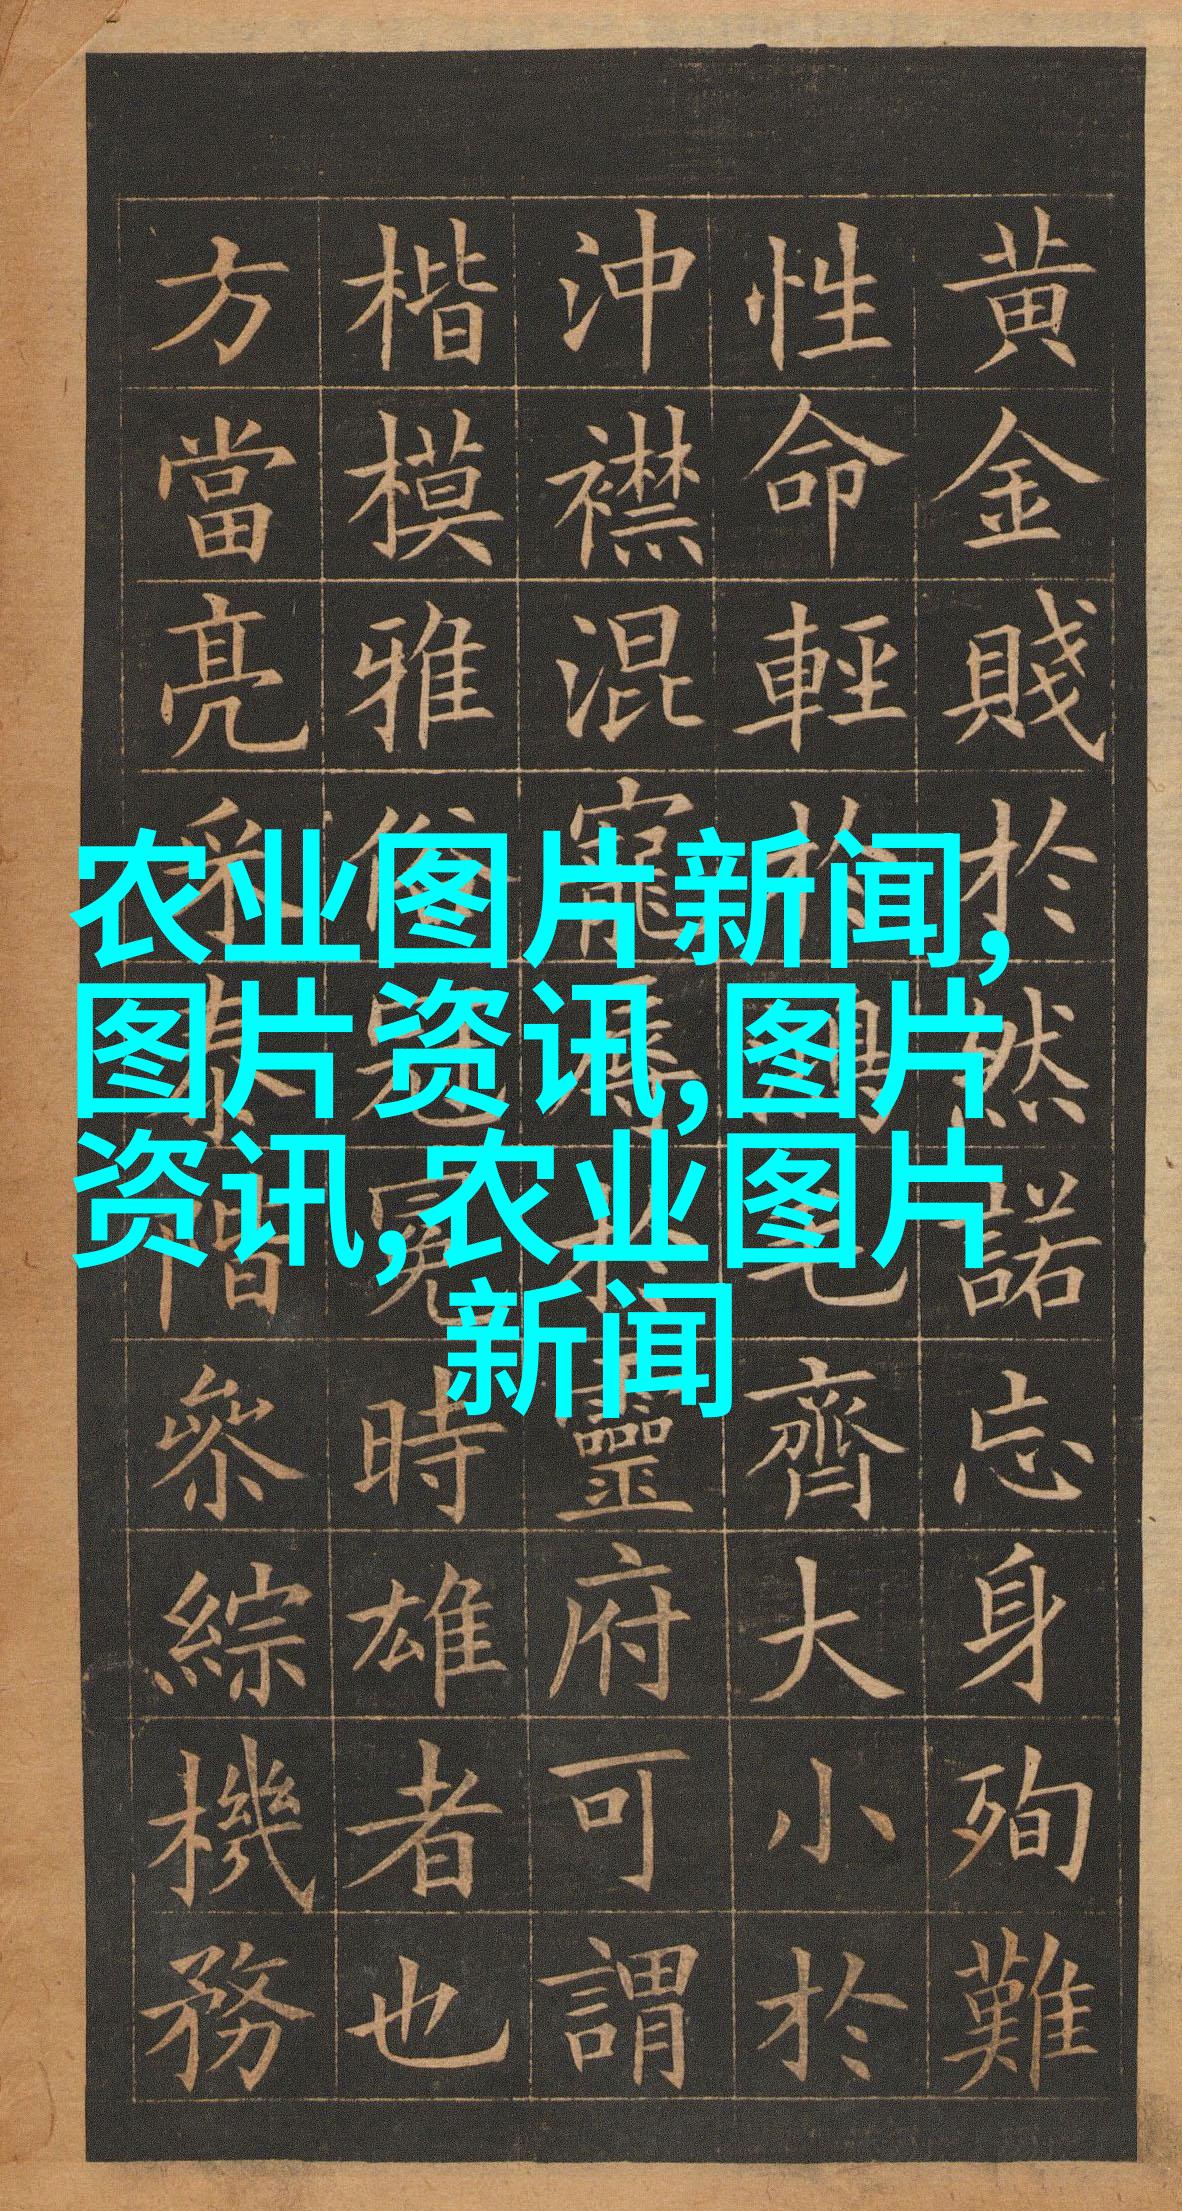 黄金賤於然諾忘身殉難
性命輕於鴻毛齊大小於
沖襟混寵辱於靈府可謂
楷模雅俗冠冕時雄者也
方當亮采泰階參綜機務
农业图片新闻,
图片资讯,图片
资讯,农业图片
新闻